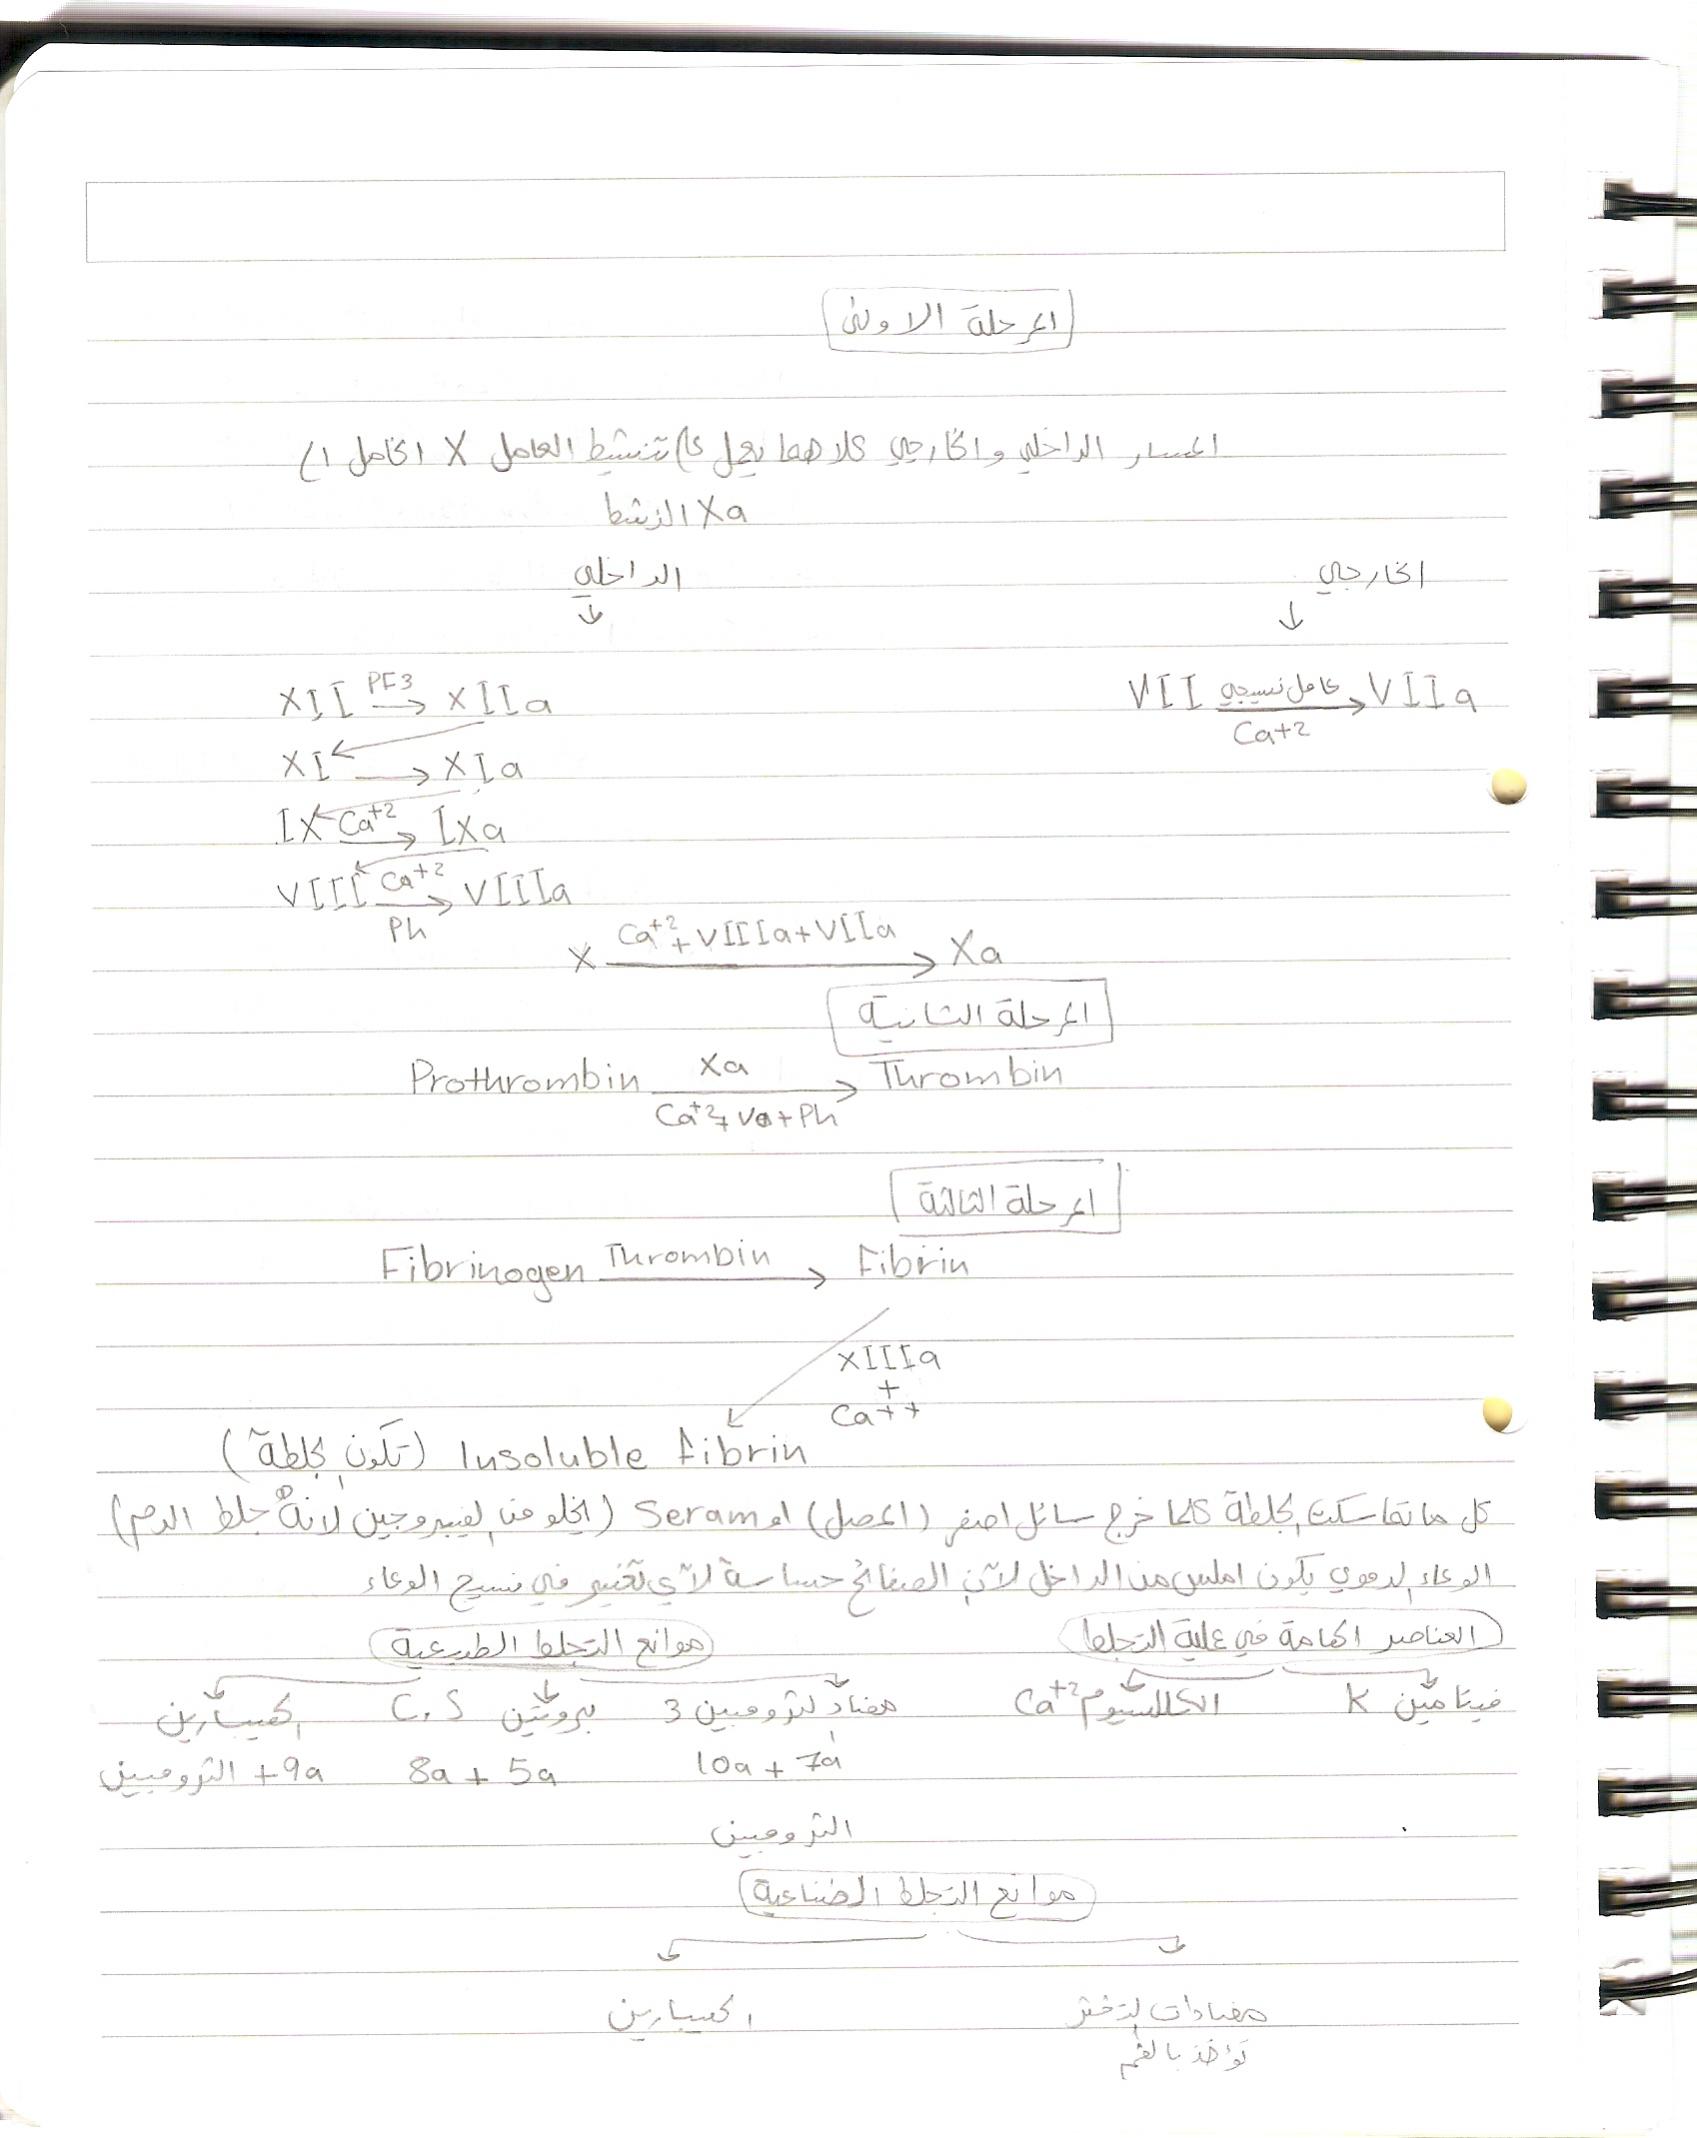 المرحلة الاولى
المسار الداخلي والخارجي كلاهما يعمل على تنشيط العامل X الخامل الى
Xa النشط
الخارجي
الداخلي
↓
↓
VII عامل نسيجي → VIIa
Ca+2
XII PF3 → XIIa
XI → XIa
IX Ca+2 → IXa
VIII Ca+2 → VIIIa
Ph
X Ca+2 + VIIIa + VIIa → Xa
المرحلة الثانية
Prothrombin Xa → Thrombin
Ca+2 + Va + Ph
المرحلة الثالثة
Fibrinogen Thrombin → Fibrin
XIIIa
+
Ca++
Insoluble fibrin (تكون الجلطة)
كل ما تماسكت الجلطة كلما خرج سائل اصفر (المصل) او Seram (يخلو من الفيبروجين لانه جلط الدم)
الوعاء الدموي يكون املس من الداخل لأن الصفائح حساسة لأي تغيير في نسيج الوعاء
العناصر الهامة في عملية التجلط
موانع التجلط الطبيعية
فيتامين K الكالسيوم Ca+2
مضاد الثرومبين 3 بروتين C, S الهيبارين
10a + 7a 8a + 5a 9a + الثرومبين
الثرومبين
موانع التجلط الصناعية
مضادات التخثر الهيبارين
تؤخذ بالفم